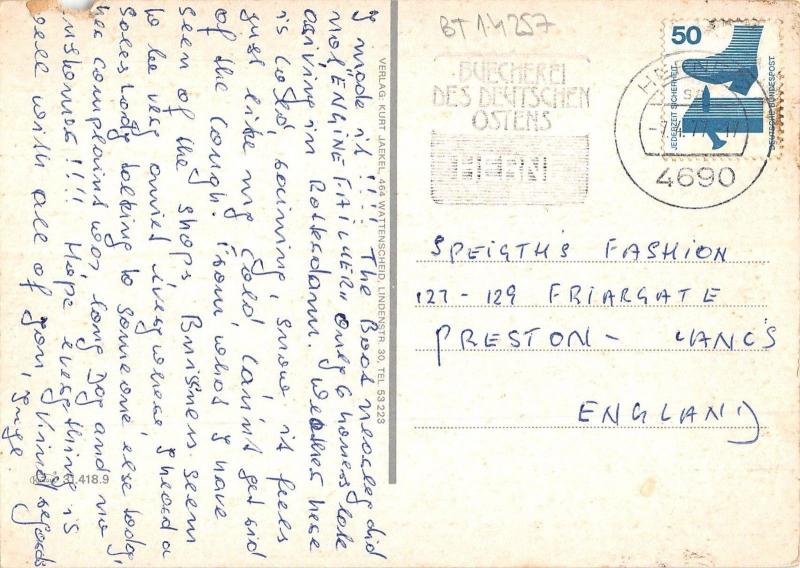 I made it !!!! The Boat nearley did
not "ENGINE FAILIER" only 6 houers late
arriving in Rotterdam. Weather here
is cold, raining, snow it feels
just like my cold can't get rid
of the cough. From what I have
seen of the shops Buisiness seem
to be very quiet everywhere, I heard a
Saleslady talking to someone else today,
her complaint was, long Day and no
customer !!!! Hope everything is
well with all of you, Kind regards
Inge.
VERLAG: KURT JAEKEL, 464 WATTENSCHEID, LINDENSTR. 30, TEL 53 223
31.418.9
BT 14257
BUECHEREI
DES DEUTSCHEN
OSTENS
HERNE
50
JEDERZEIT SICHERHEIT
DEUTSCHE BUNDESPOST
4690
SPEIGTH'S FASHION
127-129 FRIARGATE
PRESTON - LANC'S
ENGLAND